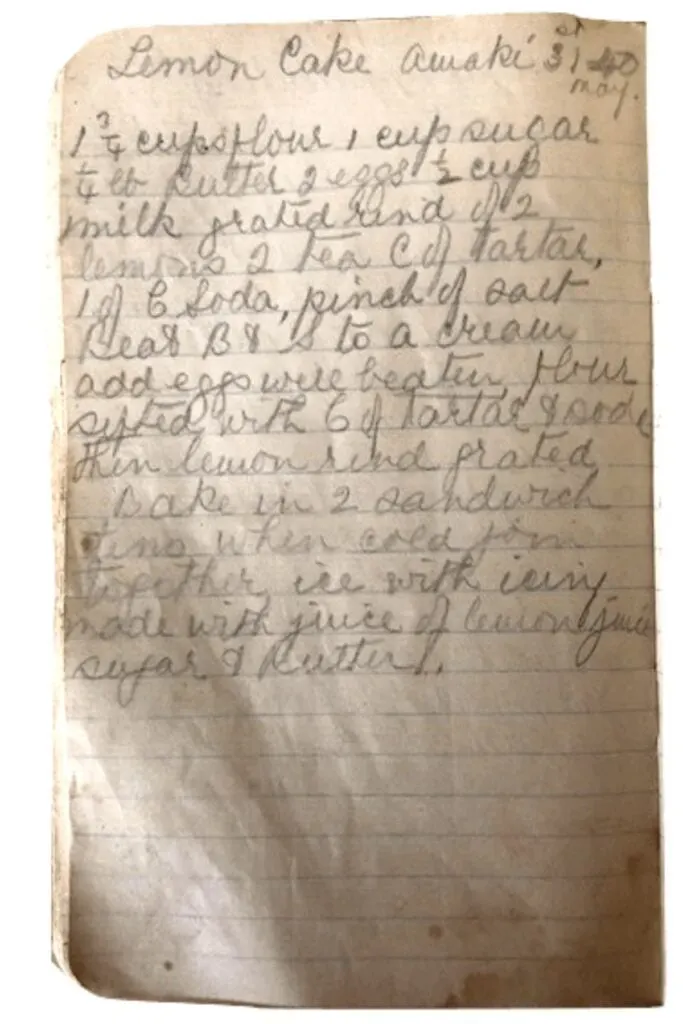 Lemon Cake Awaki 31st 40
may.
1 3/4 cups flour 1 cup sugar
1/4 lb Butter 2 eggs 1/2 cup
milk grated rind of 2
lemons 2 tea C of Tartar,
1 of C Soda, pinch of salt
Beat B & S to a cream
add eggs well beaten, flour
sifted with C of Tartar & soda
then lemon rind grated
Bake in 2 sandwich
tins when cold join
together ice with icing
made with juice of lemon juice
sugar & Butter.